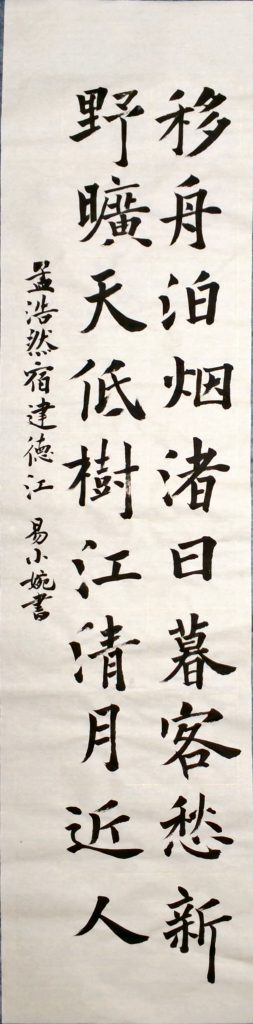 移舟泊烟渚日暮客愁新
野曠天低樹江清月近人
孟浩然宿建德江 易小婉書